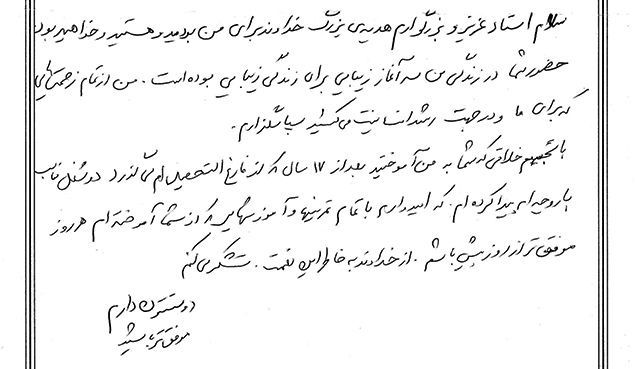 سلام استاد عزیز و بزرگوارم هدیه‌ی بزرگ خداوند برای من بودید و هستید و خواهید بود
حضور شما در زندگی من سرآغاز زیبایی برای زندگی زیبایی بوده است . من از تمام زحمت‌هایی
که برای ما و در جهت رشد انسانیت می‌کشید سپاسگزارم .
با تجسم خلاقی که شما به من آموختید بعد از ۱۷ سال که از فارغ التحصیلی‌ام می‌گذرد دو شغل
با روحیه‌ام پیدا کرده‌ام . که امیدوارم با تمام تمرینها و آموزشهایی که از شما آموخته‌ام هر روز
موفق‌تر از روز پیش باشم . از خداوند به خاطر این نعمت . تشکر می‌کنم
دوستتون دارم
موفق‌تر باشید